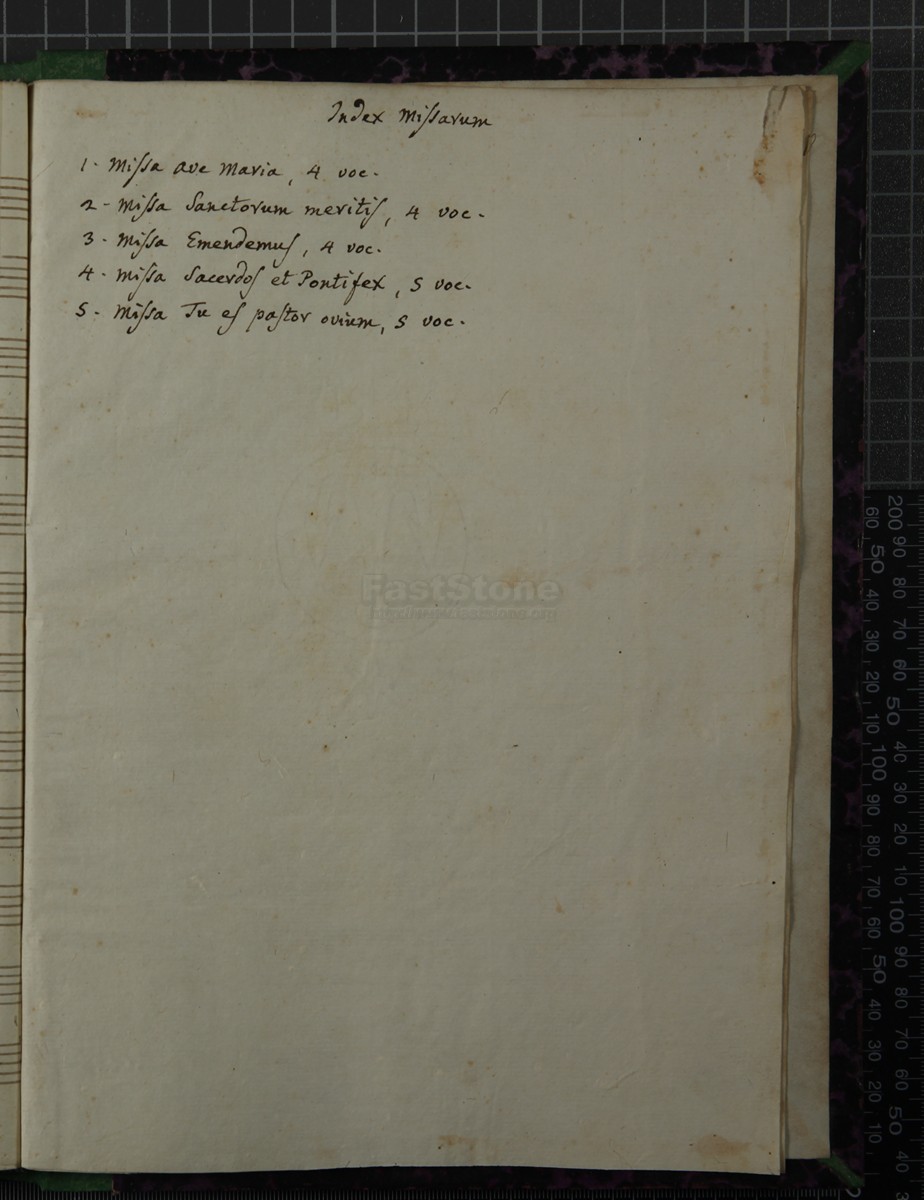 Index Missarum
1 - Missa Ave Maria, 4 voc.
2 - Missa Sanctorum meritis, 4 voc.
3 - Missa Emendemus, 4 voc.
4 - Missa Sacerdos et Pontifex, 5 voc.
5 - Missa Tu es pastor ovium, 5 voc.
FastStone
60 50 40 30 20 10 100 90 80 70 60 50 40 30 20 10
200 90 80 70 60 50 40 30 20 10 100 90 80 70 60 50 40